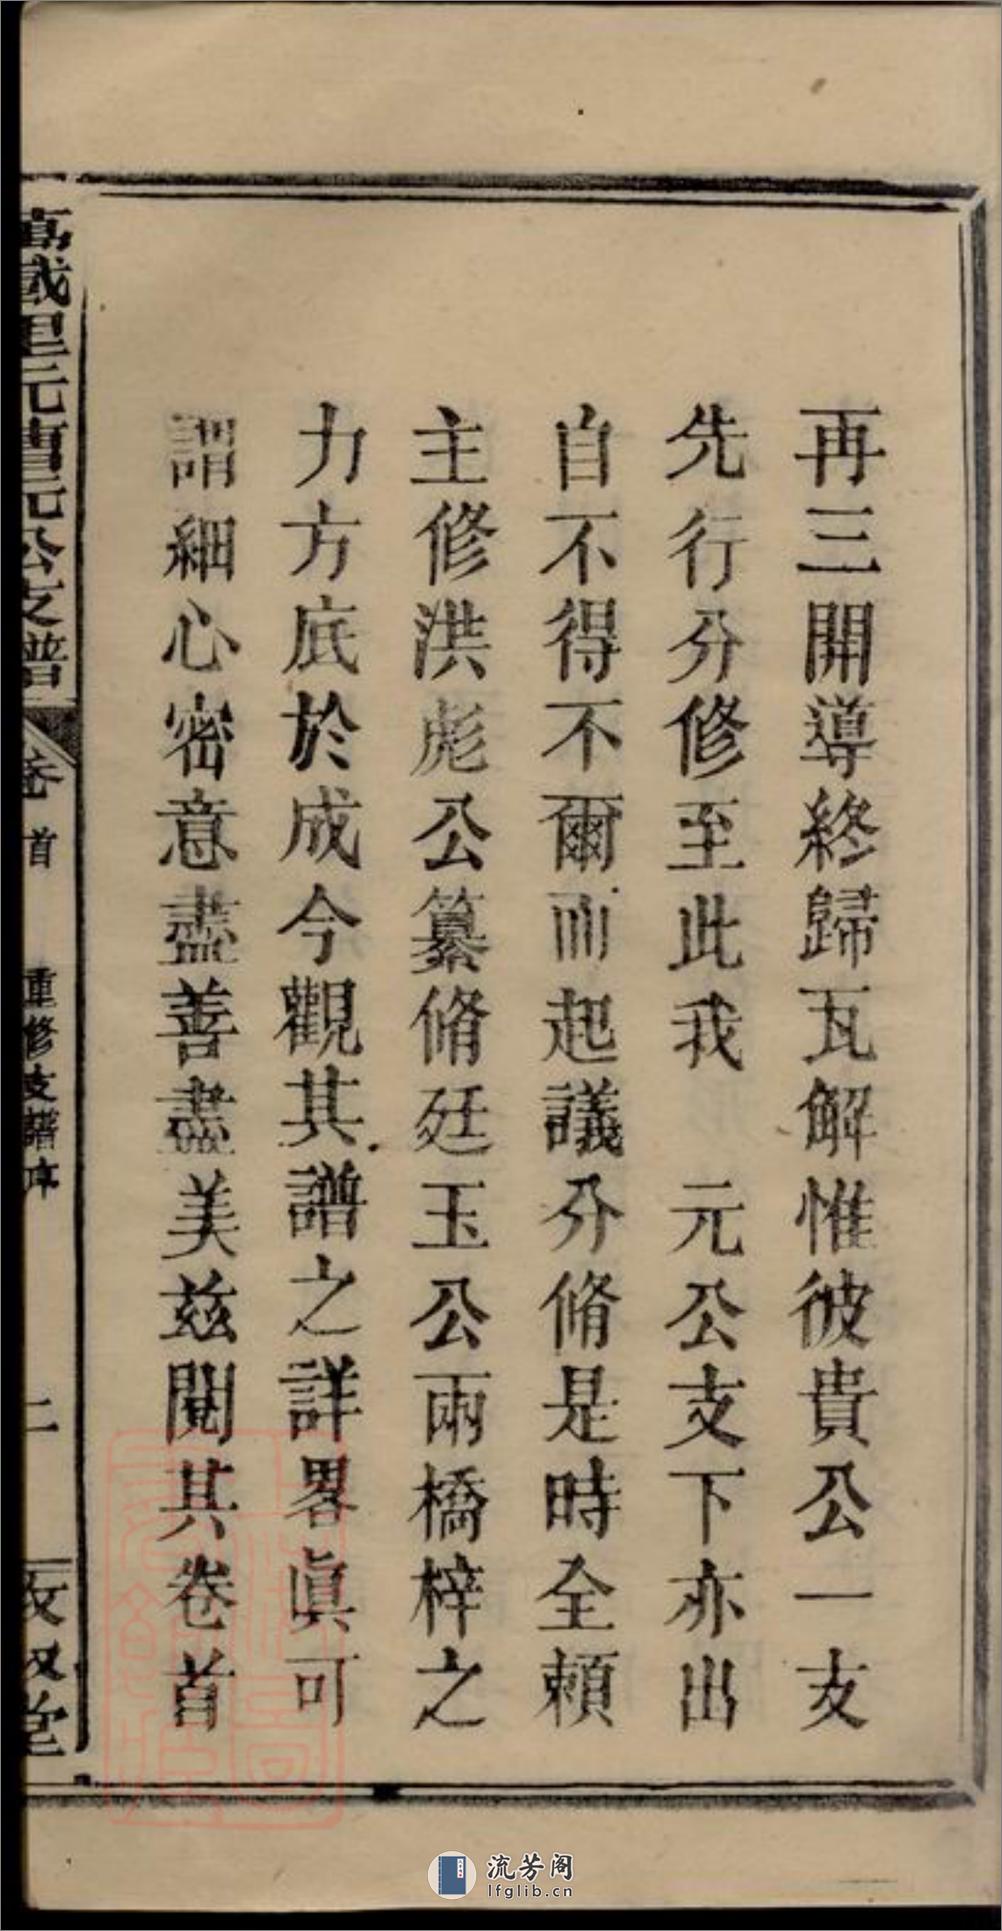 再三開導終歸瓦解惟彼貴公一支
先行分修至此我　元公支下亦出
自不得不爾而起議分脩是時全頼
主修洪彪公纂脩廷玉公兩橋梓之
力方底於成今觀其譜之詳畧眞可
謂細心密意盡善盡美兹閱其卷首
元公支譜
卷首
重修支譜序
二
堂
流芳阁
lfglib.cn